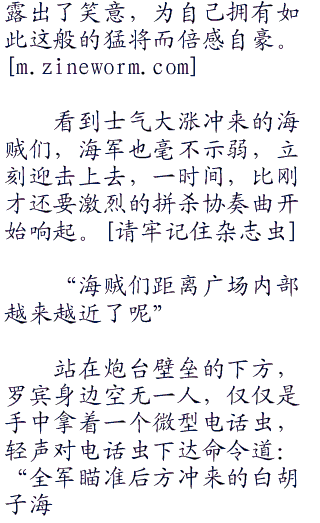 露出了笑意，为自己拥有如
此这般的猛将而倍感自豪。
[m.zineworm.com]
看到士气大涨冲来的海
贼们，海军也毫不示弱，立
刻迎击上去，一时间，比刚
才还要激烈的拼杀协奏曲开
始响起。[请牢记住杂志虫]
“海贼们距离广场内部
越来越近了呢”
站在炮台壁垒的下方，
罗宾身边空无一人，仅仅是
手中拿着一个微型电话虫，
轻声对电话虫下达命令道：
“全军瞄准后方冲来的白胡
子海